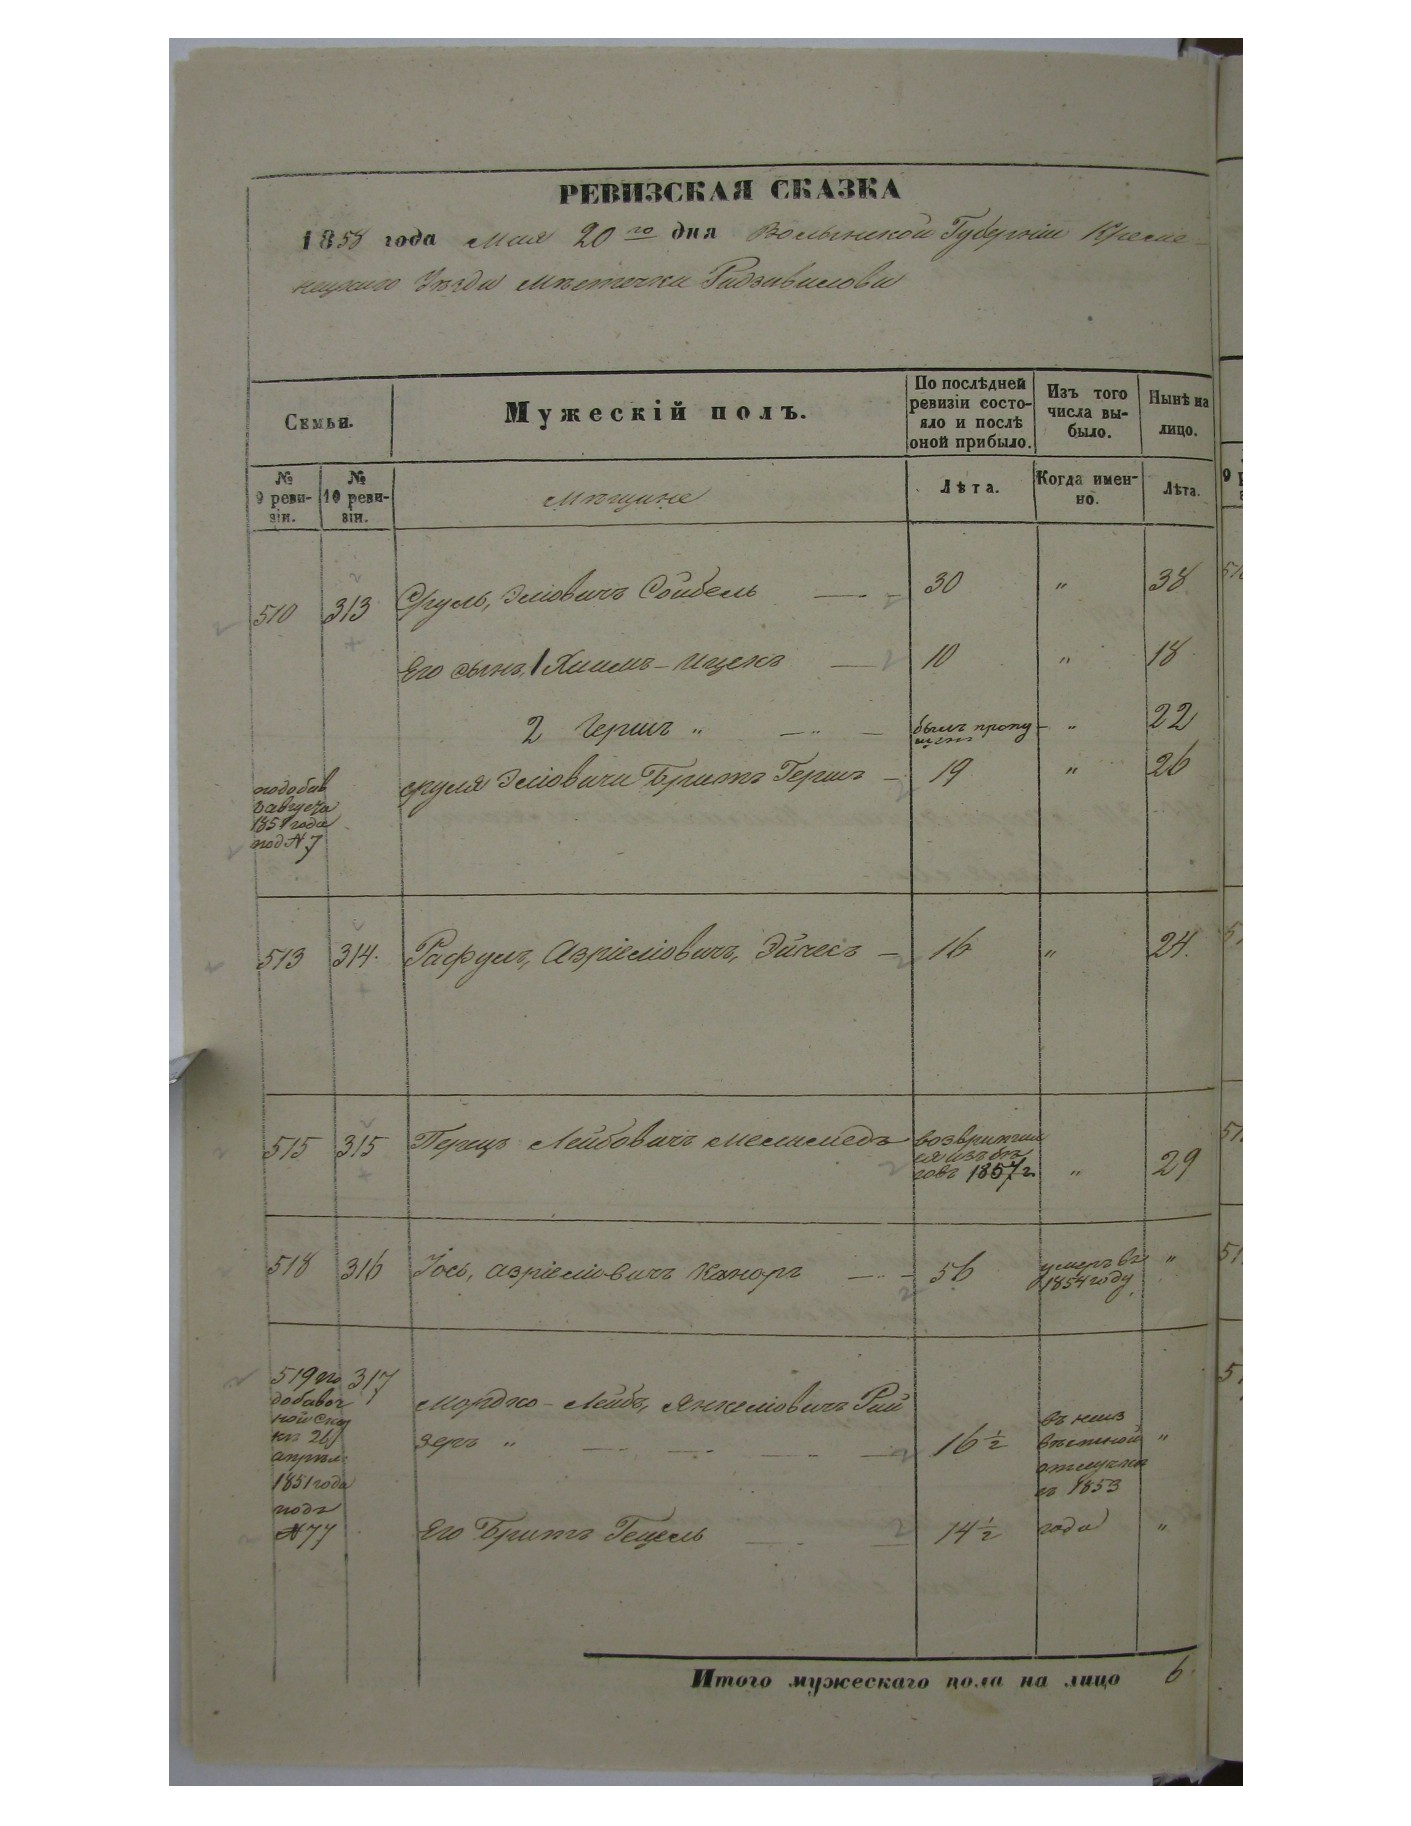 РЕВИЗСКАЯ СКАЗКА
1858 года Мая 20го дня Волынской Губерніи Кременецкаго Уѣзда Мѣстечка Радзивилова
Семьи.
Мужескій полъ.
По послѣдней ревизіи состояло и послѣ оной прибыло.
Изъ того числа выбыло.
Нынѣ на лицо.
№ 9 ревизіи.
№ 10 ревизіи.
Мѣщане
Лѣта.
Когда именно.
Лѣта.
510 313 Сруль, Эліовичъ Сойбель 30 " 38
Его сынъ, 1 Хаимъ-Ицекъ 10 " 18
2 Гершъ " был пропущенъ " 22
подобав 3 августа 1851 года под № 7
Сруля Эліовича Братъ Гершъ 19 " 26
513 314. Рафулъ, Азріеліовичъ, Эйчесъ 16 " 24.
515 315 Перецъ Лейбовичъ Меламедъ возвратился изъ бѣговъ 1857 г. " 29
518 316 Іось, Азріеліовичъ Каноръ 56 умеръ въ 1854 году. "
519 по добавочной сказкѣ 26 апрѣля 1851 года подъ № 77
317 Мордко-Лейбъ, Янкеліовичъ Райзеръ " 16 1/2 въ неизвѣстной отлучкѣ съ 1853 года "
Его Братъ Гецель 14 1/2 "
Итого мужескаго пола на лицо 6.